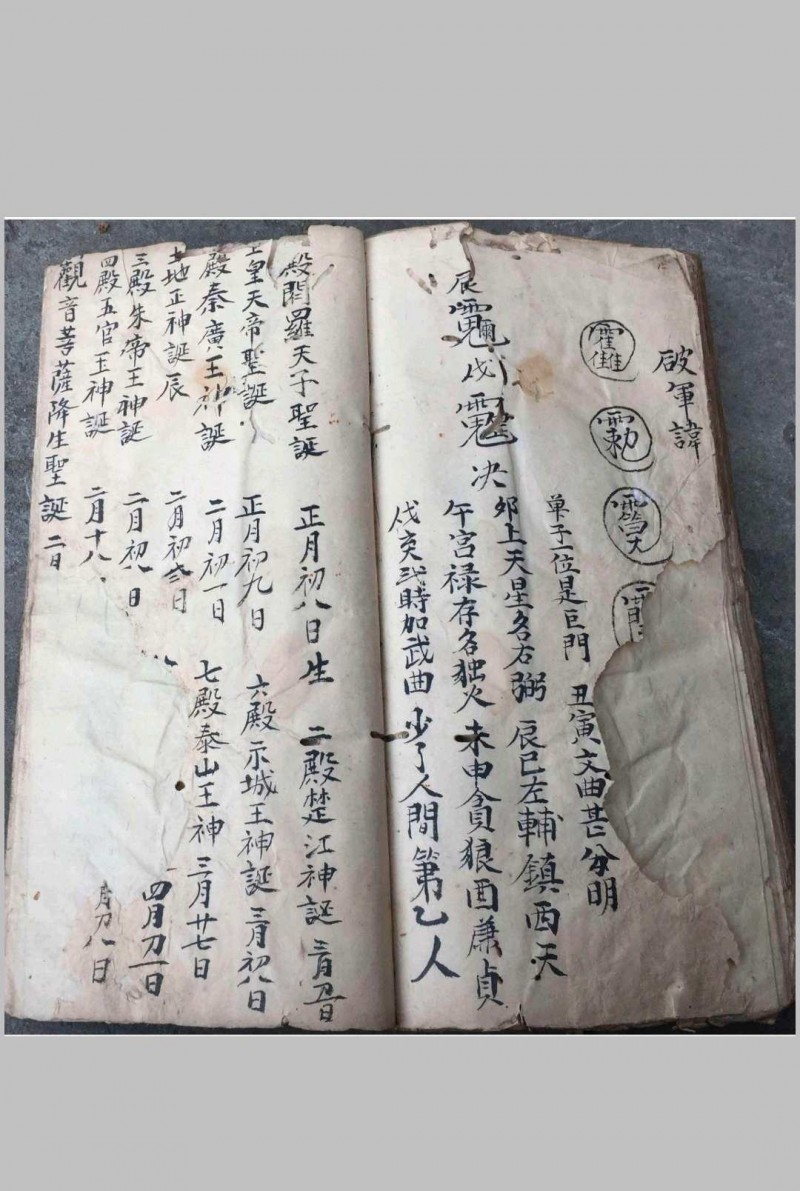 破軍諱
單子一位是巨門 丑寅文曲甚分明
卯上天星名右弼 辰巳左輔鎮西天
午宮禄存名独火 未申貪狼酉廉貞
戌亥弍時加武曲 少了人間第乙人
辰
戌
决
殿閻羅天子聖誕 正月初八日生 二殿楚江神誕
皇天帝聖誕 正月初九日 六殿卞城王神誕 三月初八日
殿秦廣王神誕 二月初一日 七殿泰山王神 三月廿七日
土地正神誕辰 二月初弍日 四月初一日
三殿朱帝王神誕 二月初八日 八日
四殿五官王神誕 二月十八
觀音菩薩降生聖誕 二日